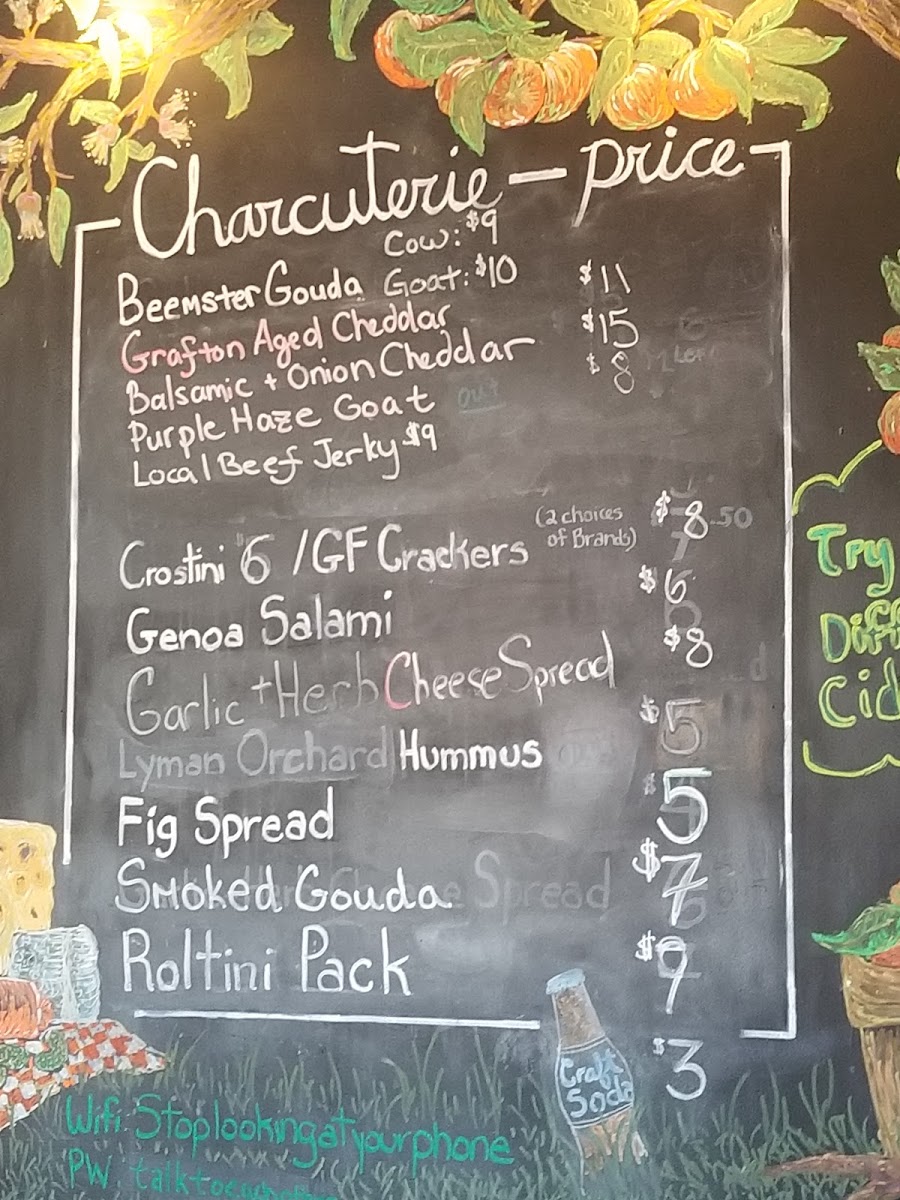 Charcuterie — price
Cow: $9
Beemster Gouda Goat: $10
Grafton Aged Cheddar $11
Balsamic + Onion Cheddar $15
Purple Haze Goat out $8
Local Beef Jerky $9
Crostini $6 /GF Crackers (2 choices of Brands) $8.50
Genoa Salami $6
Garlic + Herb Cheese Spread $8
Lyman Orchard Hummus $5
Fig Spread $5
Smoked Gouda $7
Roltini Pack $9
Craft
Soda
$3
Wifi: Stoplookingatyourphone
PW: talktoe
Try